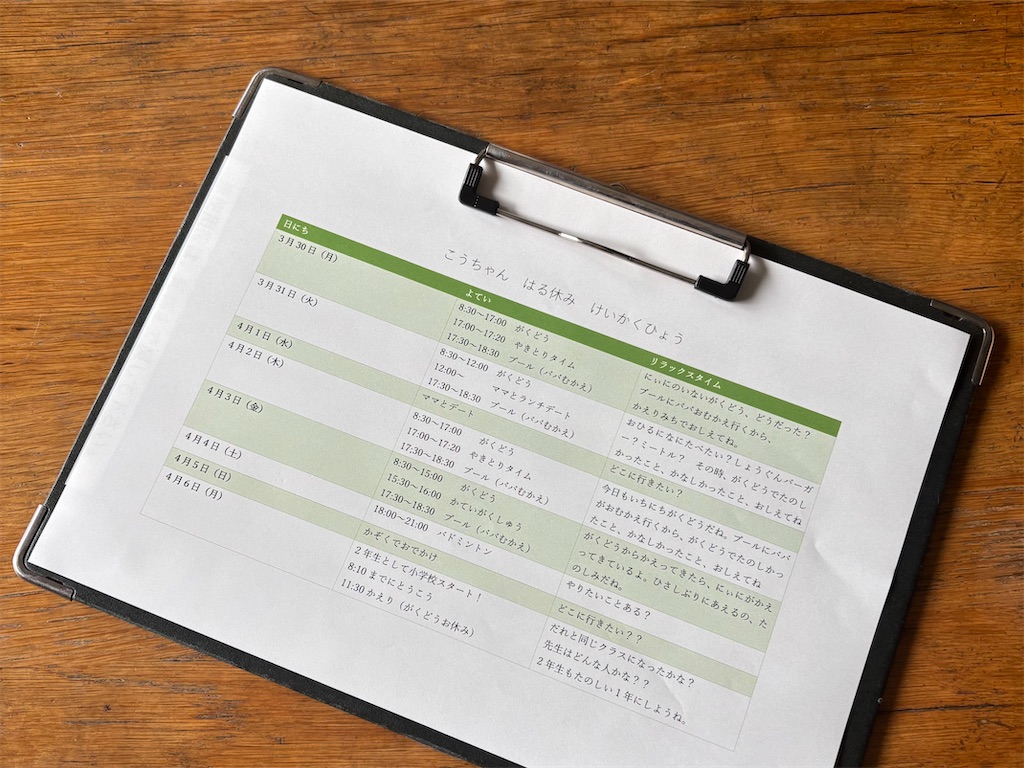 こうちゃん　はる休み　けいかくひょう
日にち
よてい
リラックスタイム
3月30日（月）
8:30～17:00　がくどう
17:00～17:20　やきとりタイム
17:30～18:30　プール（パパむかえ）
にぃにのいないがくどう、どうだった？
プールにパパおむかえ行くから、
かえりみちでおしえてね。
3月31日（火）
8:30～12:00　がくどう
12:00～　ママとランチデート
17:30～18:30　プール（パパむかえ）
おひるになにたべたい？しょうぐんバーガ
ー？ミートル？　その時、がくどうでたのし
かったこと、かなしかったこと、おしえてね
4月1日（水）
ママとデート
どこに行きたい？
4月2日（木）
8:30～17:00　がくどう
17:00～17:20　やきとりタイム
17:30～18:30　プール（パパむかえ）
今日もいちにちがくどうだね。プールにパパ
がおむかえ行くから、がくどうでたのしかっ
たこと、かなしかったこと、おしえてね
4月3日（金）
8:30～15:00　がくどう
15:30～16:00　かていがくしゅう
17:30～18:30　プール（パパむかえ）
がくどうからかえってきたら、にぃにがかえ
ってきているよ。ひさしぶりにあえるの、た
のしみだね。
4月4日（土）
18:00～21:00　バドミントン
やりたいことある？
4月5日（日）
かぞくでおでかけ
どこに行きたい？？
4月6日（月）
2年生として小学校スタート！
8:10までにとうこう
11:30かえり（がくどうお休み）
だれと同じクラスになったかな？
先生はどんな人かな？？
2年生もたのしい1年にしようね。